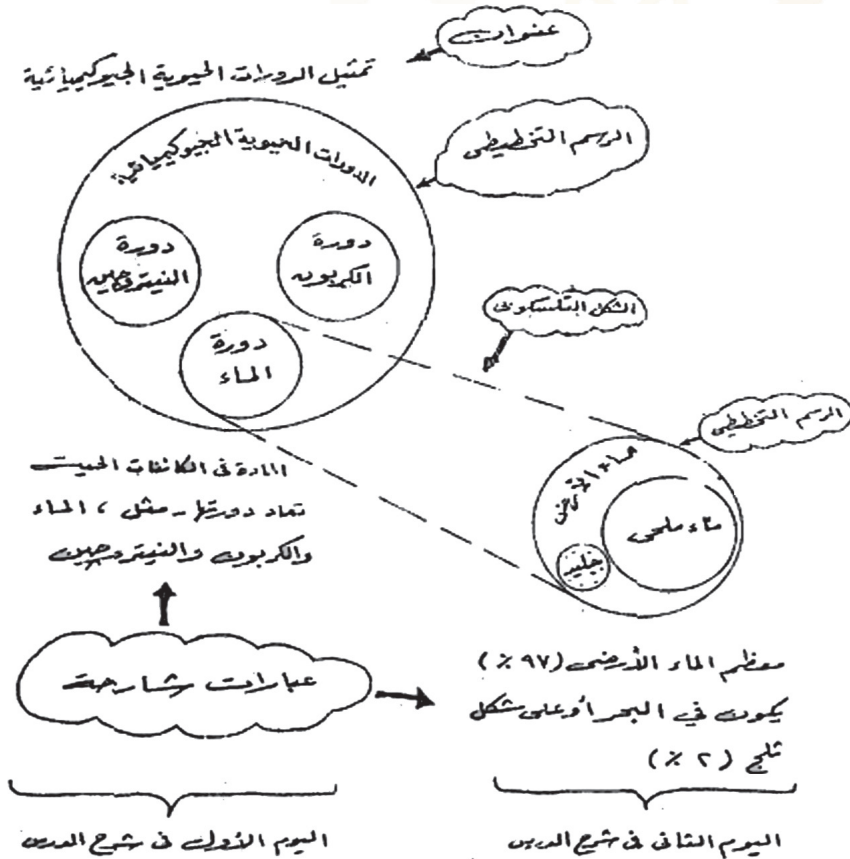 عنوان
تمثيل الدورات الحيوية الجيوكيميائية
الرسم التخطيطى
الدورات الحيوية الجيوكيميائية
دورة
النيتروجين
دورة
الكربون
دورة
الماء
الشكل التلسكوبى
الرسم التخطيطى
ماء الأرض
ماء ملحى
جليد
المادة فى الكائنات الحية
تعاد دورتها - مثل ، الماء
والكربون والنيتروجين
عبارات شارحة
معظم الماء الأرضى (٩٧ ٪)
يكون في البحر أو على شكل
ثلج (٢ ٪)
اليوم الأول فى شرح الدرس
اليوم الثانى فى شرح الدرس